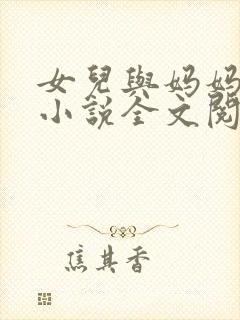 女兒與媽媽
小說全文閱
焦其香